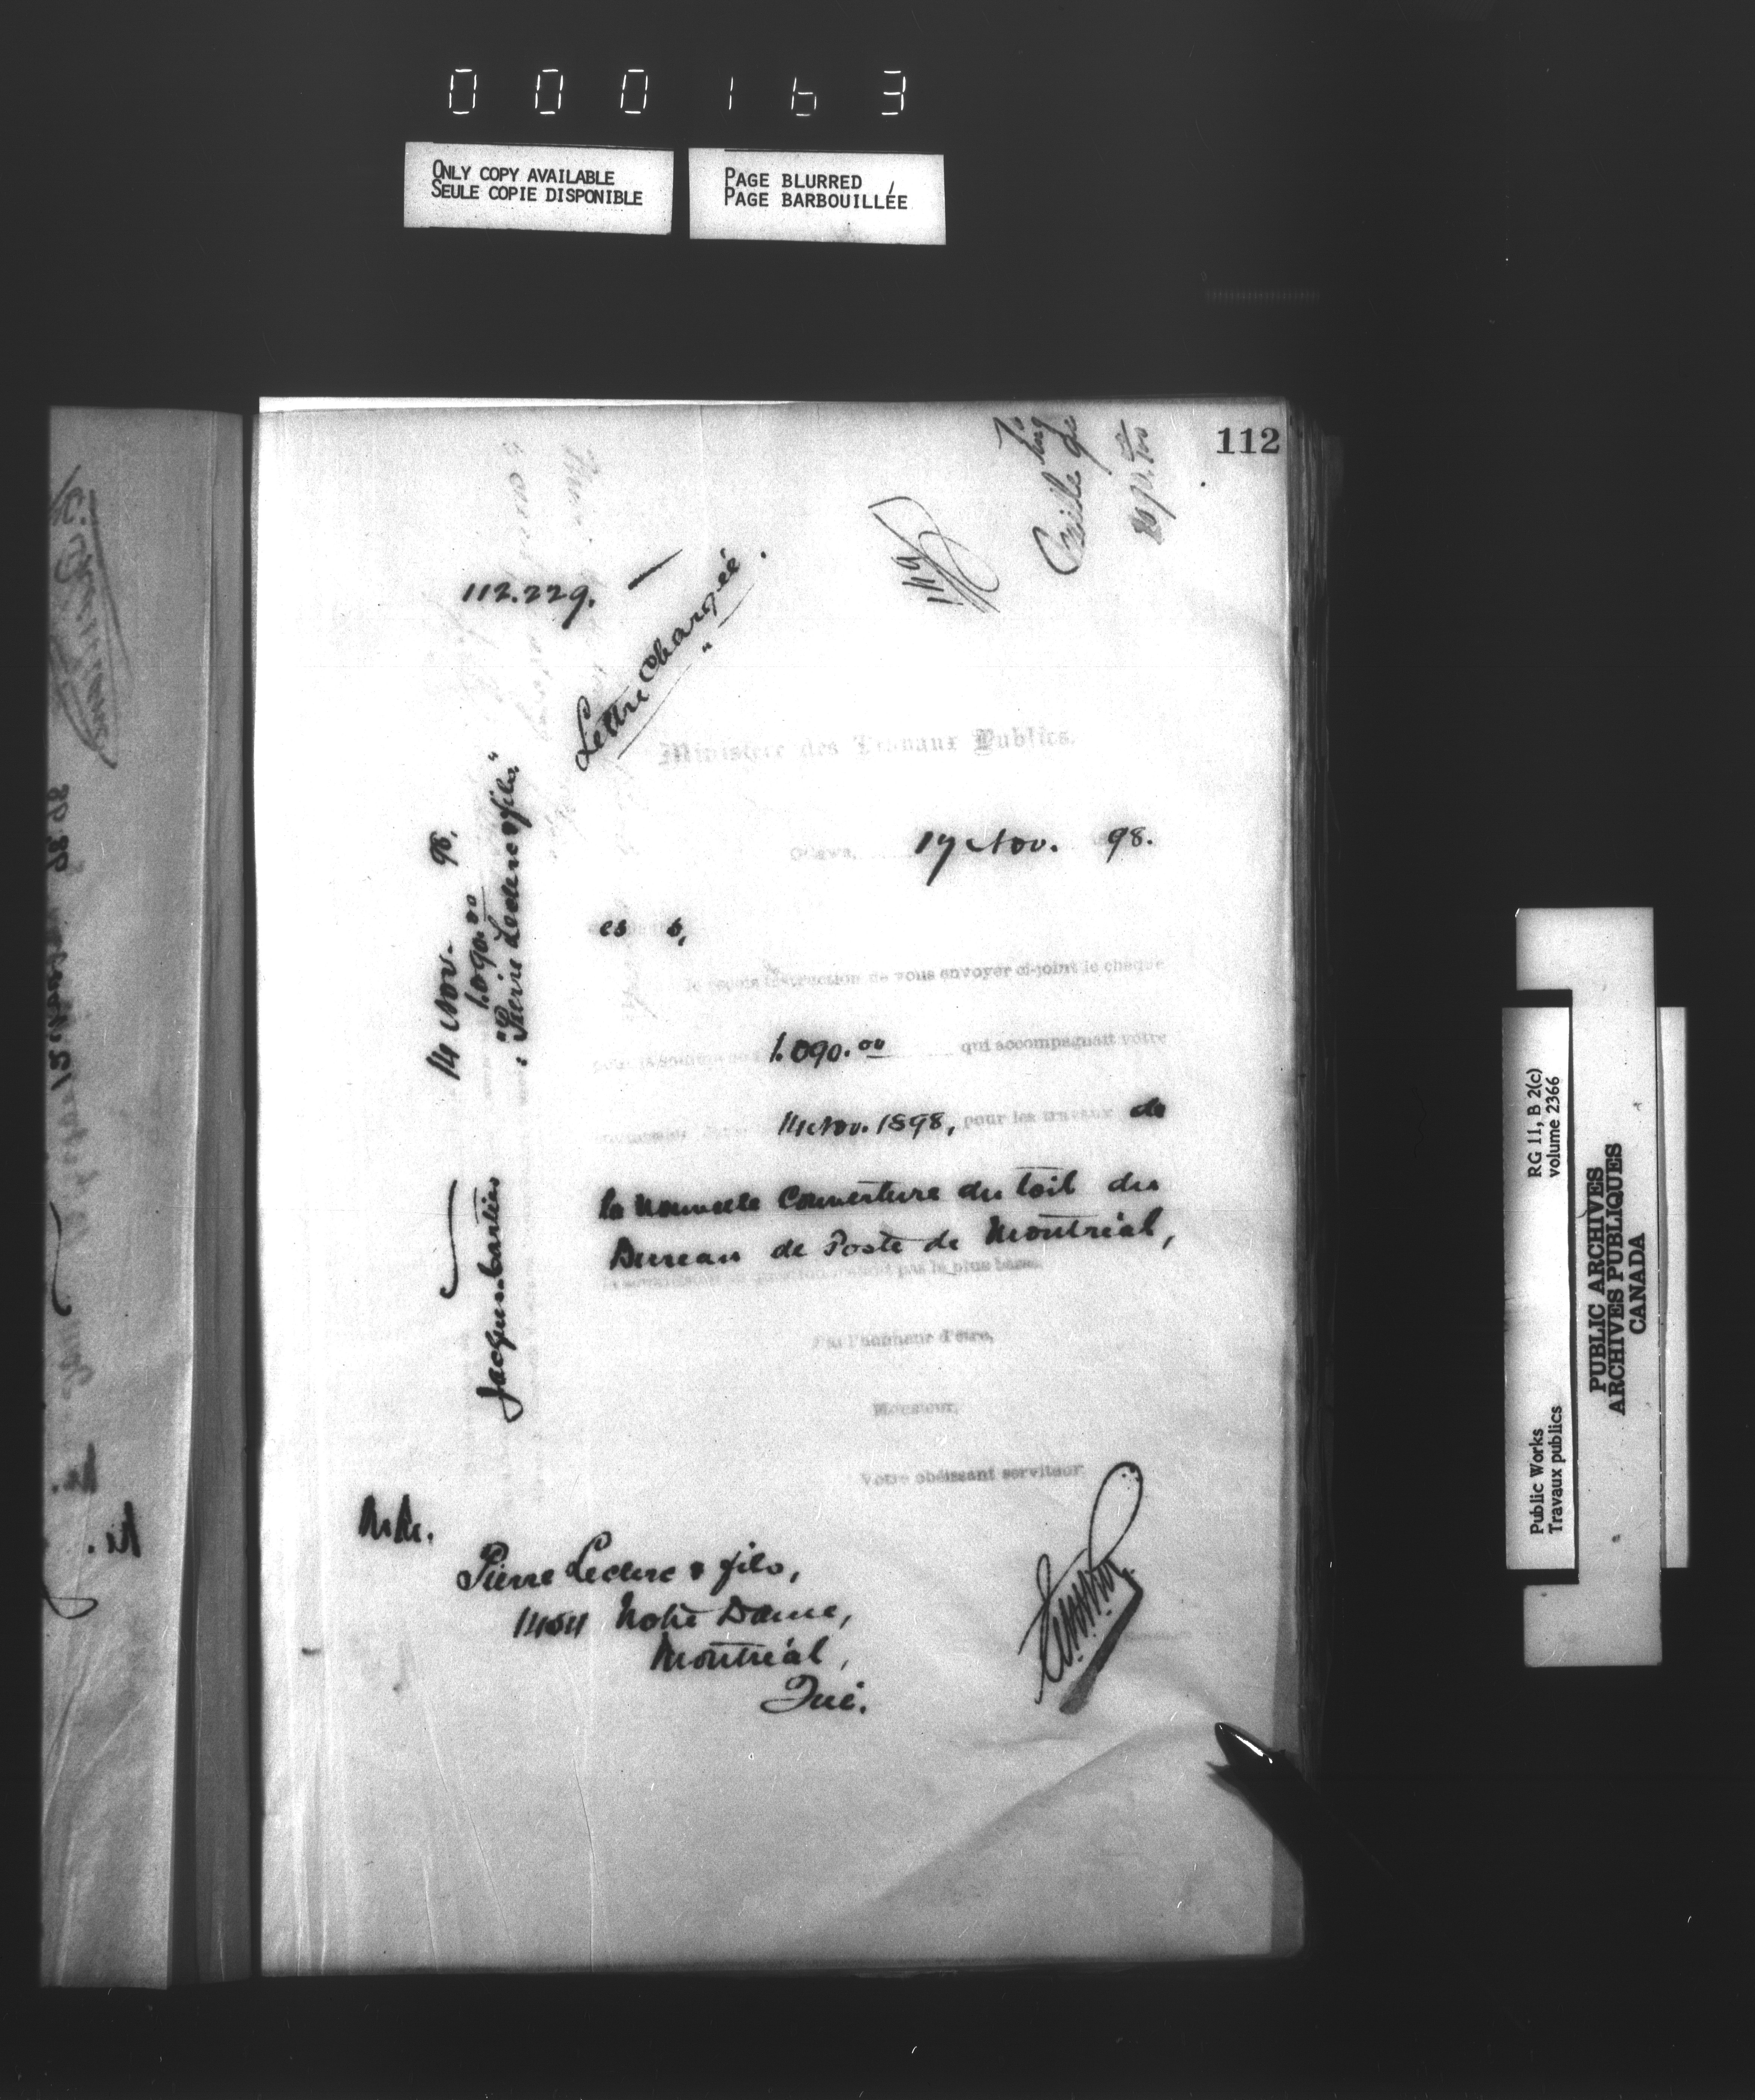 000163
ONLY COPY AVAILABLE
SEULE COPIE DISPONIBLE
PAGE BLURRED
PAGE BARBOUILLÉE
112
112.229.
Lettre Chargée.
Ministère des Travaux Publics.
Ottawa, 17 Nov. 98.
es s,
Je reçois instruction de vous envoyer ci-joint le chèque
pour la somme de 1.090.00 qui accompagnait votre
14 Nov. 1898, pour les travaux de
la nouvelle Couverture du toit du
Bureau de Poste de Montréal,
la soumission en question n'étant pas la plus basse.
J'ai l'honneur d'être,
Monsieur,
Votre obéissant serviteur
14 Nov. 98.
1.090.00
"Pierre Leclerc & fils"
Jacques-Cartier
MM.
Pierre Leclerc & fils,
1454 Notre Dame,
Montréal,
Qué.
Public Works
Travaux publics
RG 11, B 2(c)
volume 2366
PUBLIC ARCHIVES
ARCHIVES PUBLIQUES
CANADA